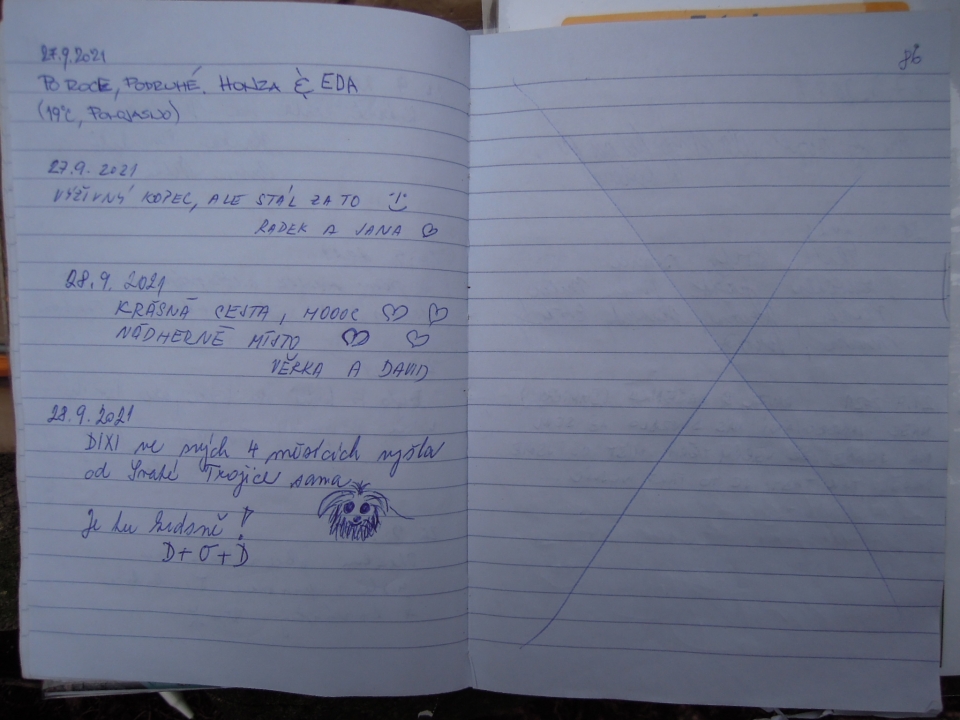 27.9.2021
PO ROCE, PODRUHÉ. HONZA & EDA
(19°C, POLOJASNO)
27.9. 2021
VÝŽIVNÝ KOPEC, ALE STÁL ZA TO :)
RADEK A JANA ♡
28.9. 2021
KRÁSNÁ CESTA, MOOOC ♡ ♡
NÁDHERNÉ MÍSTO ♡ ♡
VĚRKA A DAVID
28.9.2021
DIXI ve svých 4 měsících vyšla
od Svaté Trojice sama
Je tu krásně!
D+O+D
86